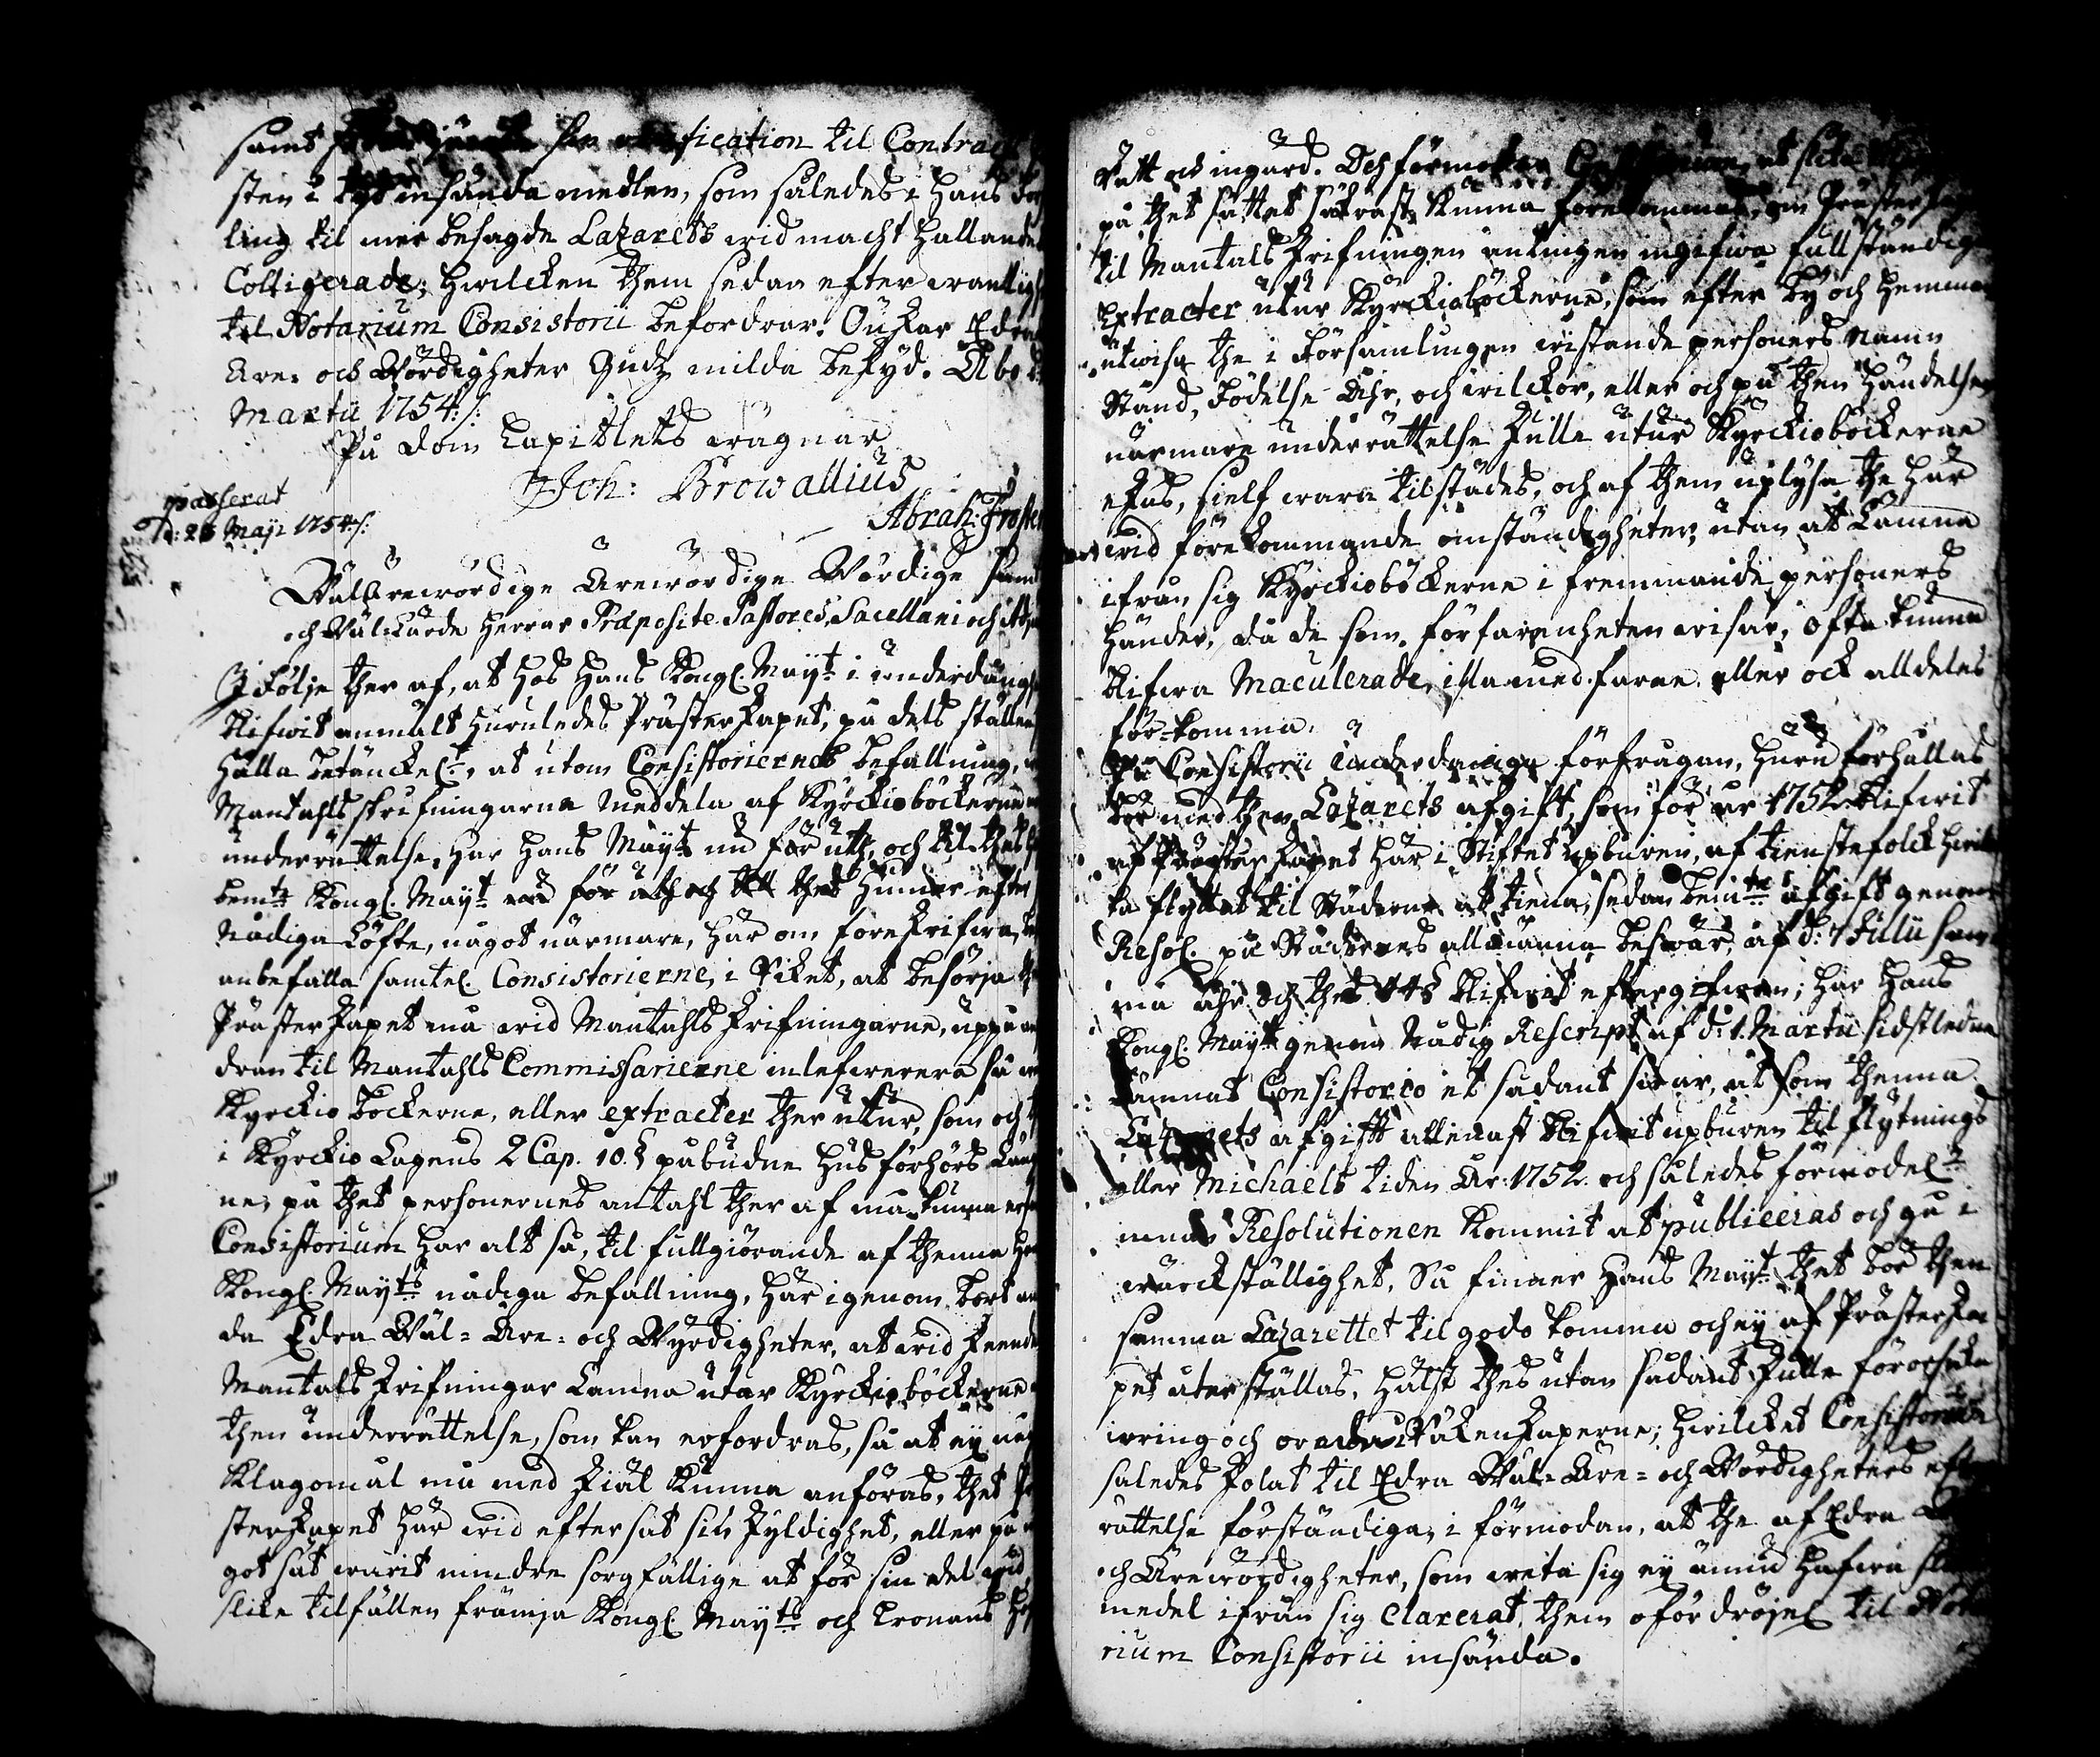 samt specification til Contract
sten i tijd insända medlen, som således i Hans
ling til mer besagde Lazarets wid macht hallande
Colligerade; hwilcken them sedan efter wanligh
til Notarium Consistorii befordrar. Önskar Edra
Äre- och Wördigheter Gudz milda beskyd. Åbo d.
Martii 1754 /:
På Dom Capitlets wägnar
Joh: Browallius
passerat
d: 26 Maji 1754 /:
Abrah: Froster
WälÄrewördige Ärewördige Wördige samt
och Wällärde Herrar Præposite Pastores, Sacellani och Adju
I följe ther af, at hos Hans Kongl. Mayt. i underdånig
blifwit anmält huruledes Prästerskapet, på dels ställen
hålla betänckel., at utom Consistoriernes befallning,
Mantahlsskrifningarna meddela af Kyrckioböckerne
underrättelse, har Hans Mayt nu förut, och til thes
bemte Kongl. Mayt nu för uth och till thes hinner efter
Nådiga Löfte, något närmare, här om föreskrifwa,
anbefalla samtel. Consistorierne, i Riket, at besörja
Prästerskapet må wid Mantahlsskrifningarne, uppå an
dran til Mantahls Commissarierne inlefwerera så
Kyrckioböckerne, eller extracter ther utur, som och
i Kyrckio Lagens 2 Cap. 10. § påbudne husförhörs Läng
ne, på thet personernes antahl ther af må kunna
Consistorium har alt så, til fullgiörande af thenna
Kongl. Mayts nådiga befallning, här igenom bort
da Edra Wäl- Äre- och Wyrdigheter, at wid skeende
Mantals skrifningar lämna utur Kyrckioböckerne
then underrättelse, som kan erfordras, så at ey
klagomål må med skiäl kunna anföras, thet
sterskapet här wid eftersat sin skyldighet, eller på
got sät warit mindre sorgfällige at för sin del wid
slike tilfällen främja Kongl. Mayts och Cronans
Rätt och ingärd. Och förmodar at slikt
på thet sättet säkrast kunna förekommas, om Prästerska
til Mantals skrifningen antingen ingifwa fullständig
Extracter utur Kyrckioböckerne, som efter by och hemman
utwisa the i Församlingen wistande personers namn
Stånd, Födelse Åhr, och wilckor, eller och på then händelsen
närmare underrättelse skulle utur Kyrckioböckerne
ökas, sielf wara tilstädes, och af them uplysa the här
wid förekommande omständigheter, utan at lämna
ifrån sig Kyrckioböckerne i fremmande personers
händer, då de som förfarenheten wisar, ofta kunna
blifwa Maculerade, illa med farne eller ock alldeles
för-komma.
På Consistorii underdåniga förfrågan, huru förhållas
bör med then Lazarets afgift, som för år 1752 blifwit
af Prästerskapet här i Stiftet upburen, af tienstefolck hwil
ka flyttat til Städerne at tiena, sedan bemte afgift genom
Resol. på Städernes allmänna beswär, af d: 7 Julii sam
ma åhr och thes 44 § blifwit eftergifwen; har Hans
Kongl. Mayt genom Nådig Rescript af d: 1. Martii sidstledne
lämnat Consistorio et sådant swar, at som thenna
Lazarets afgift allenast blifwit upburen til flytnings
eller Michaels tiden År 1752 och således förmodel.
innan Resolutionen kommit at publiceras och gå i
wärckställighet, Så finner Hans Mayt thet bör then
samma Lazarettet til godo komma och ey af Prästerska
pet återställas, hälst thes utan sådant skulle förorsaka
irring och oreda i Räkenskaperne; hwilcket Consistorium
således skolat til Edra Wäl- Äre- och Wördigheters efter
rättelse förständiga, i förmodan, at the af Edra
och Ärewördigheter, som weta sig ey ännu hafwa
medel ifrån sig Clarerat, them ofördröjel. til Nota
rium Consistorii insända.